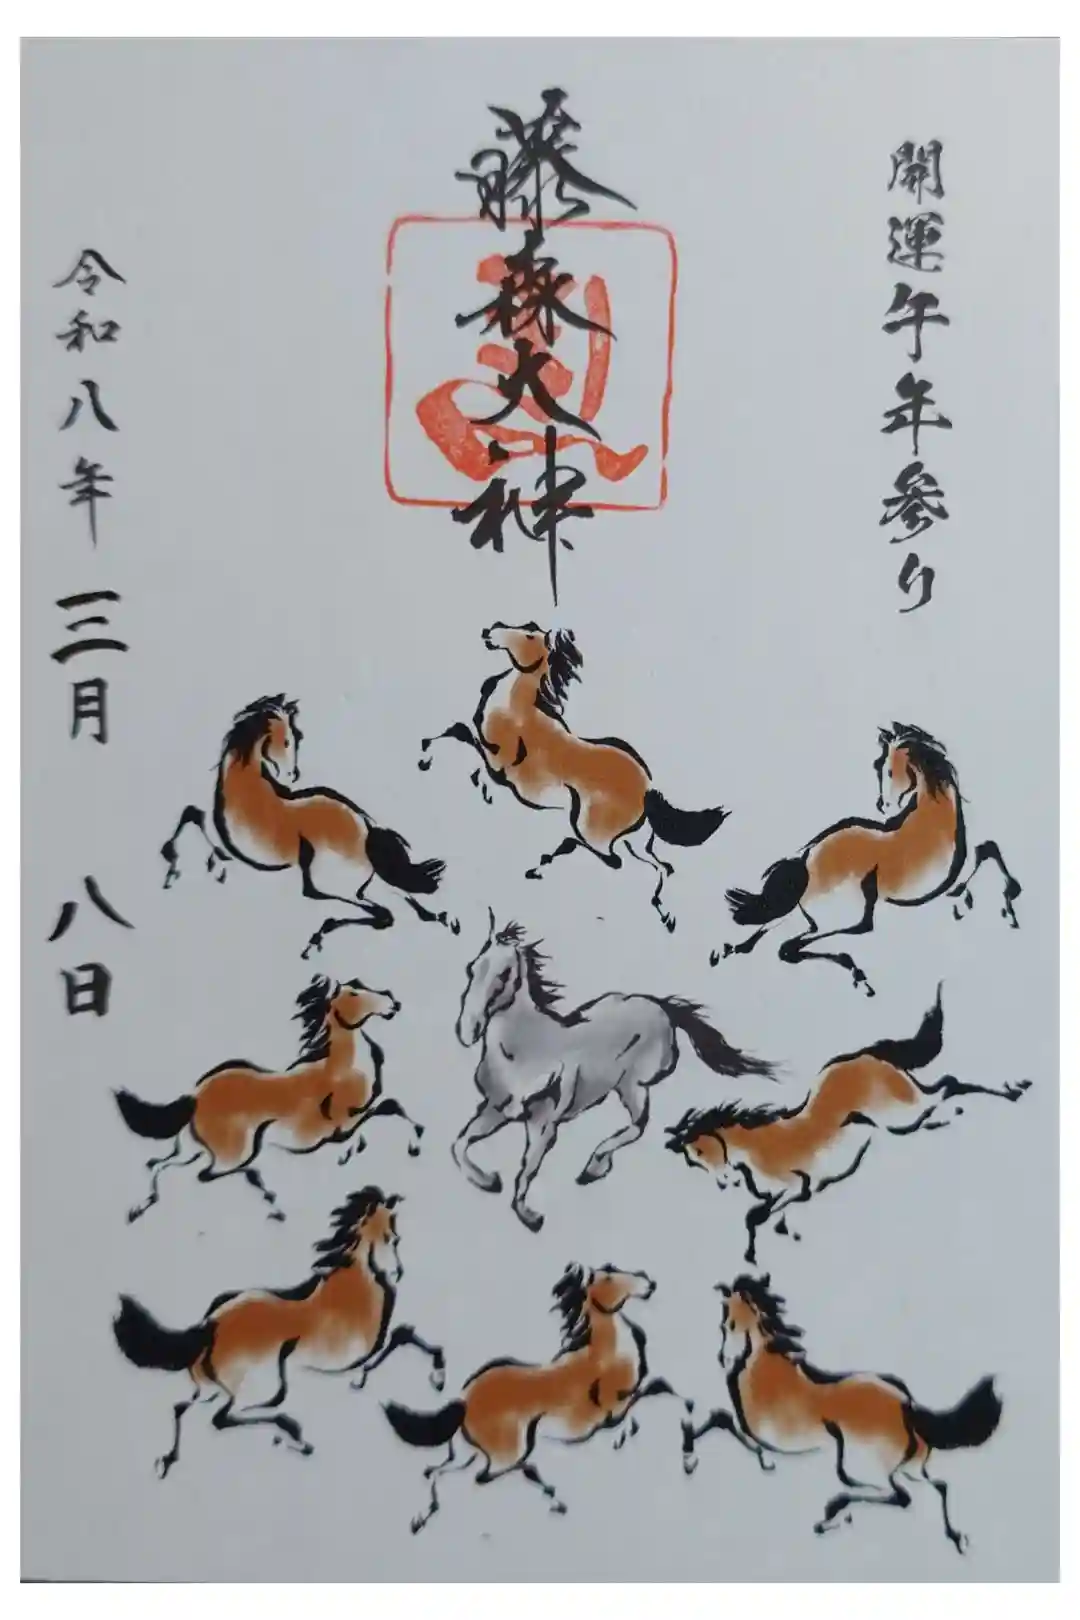 開運午年参り
藤森大神
令和八年三月八日